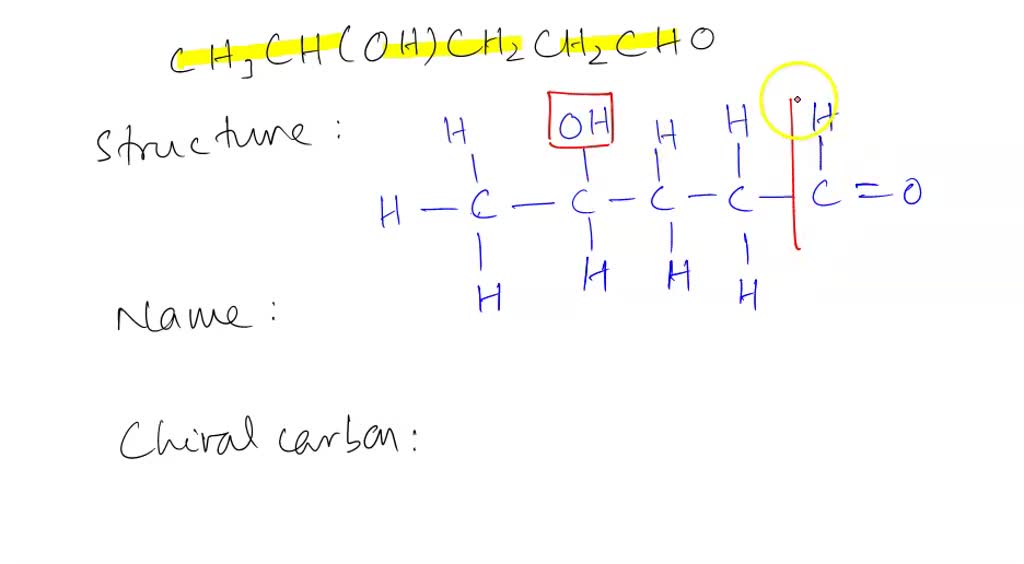 CH₃CH(OH)CH₂CH₂CHO
Structure:
H OH H H H
H — C — C — C — C — C = O
H H H H
Name:
Chiral carbon: